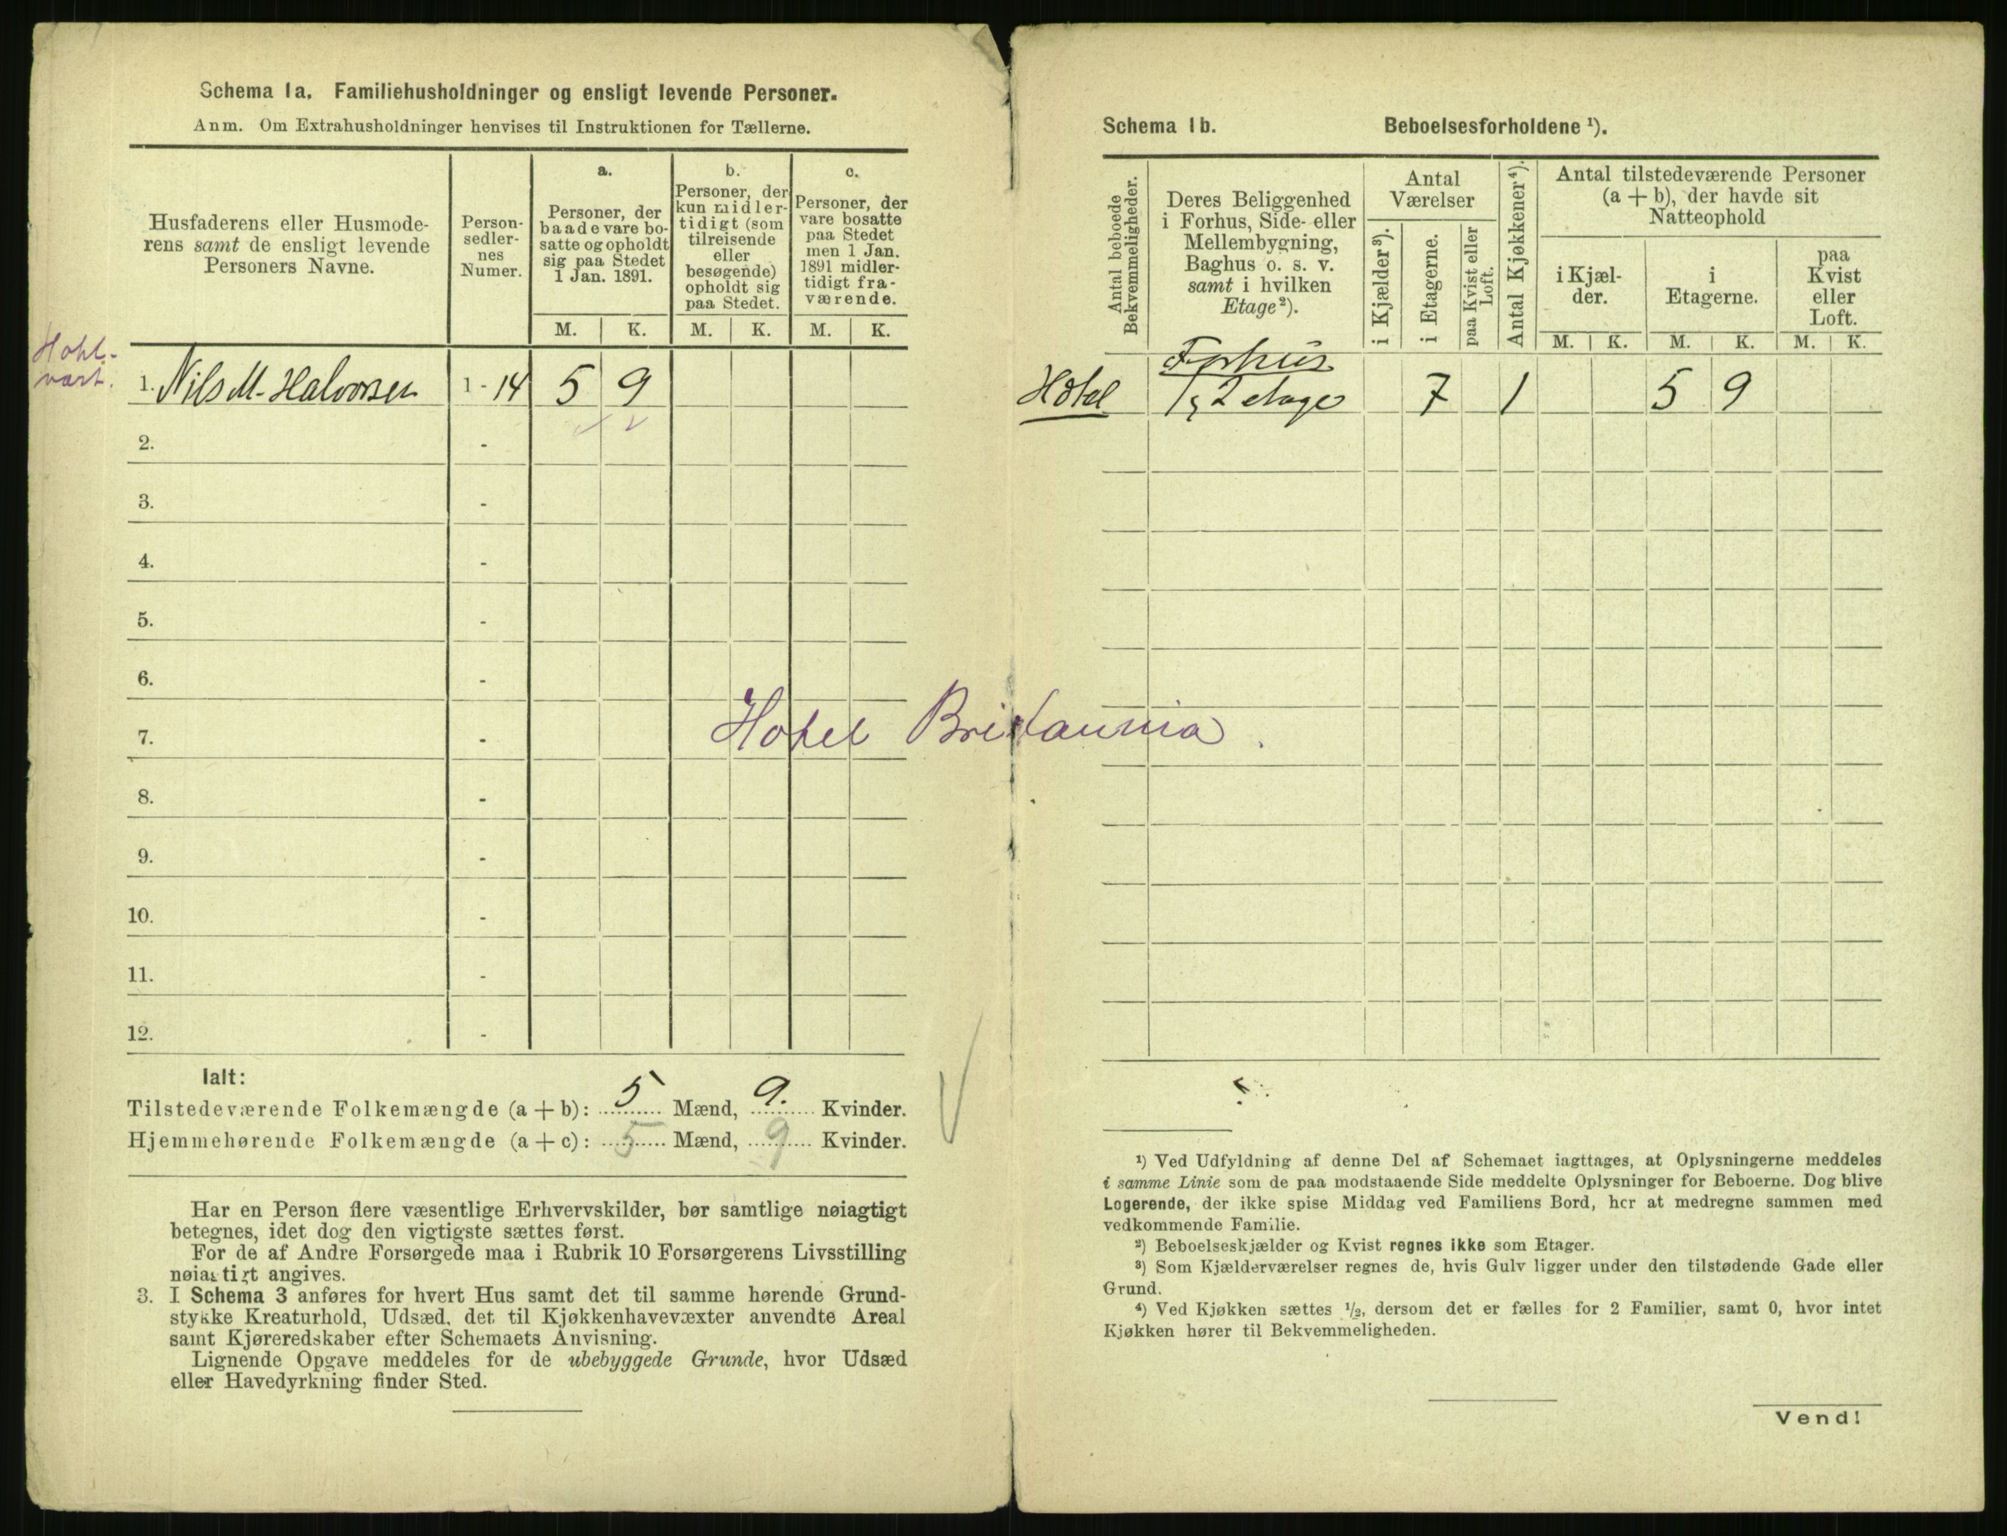 Schema 1a. Familiehusholdninger og ensligt levende Personer.
Anm. Om Extrahusholdninger henvises til Instruktionen for Tællerne.
Husfaderens eller Husmoderens samt de ensligt levende Personers Navne.
Person-
sedler-
nes
Numer.
a.
Personer, der
baade vare bo-
satte og opholdt
sig paa Stedet
1 Jan. 1891.
M. K.
b.
Personer, der
kun midler-
tidigt (som
tilreisende
eller
besøgende)
opholdt sig
paa Stedet.
M. K.
c.
Personer, der
vare bosatte
paa Stedet
men 1 Jan.
1891 midler-
tidigt fra-
værende.
M. K.
Hotel-
vært.
1. Nils M. Halvorsen 1 - 14 5 9
2. -
3. -
4. -
5. -
6. -
7. -
8. -
9. -
10. -
11. -
12. -
Hotel Britannia.
Ialt:
Tilstedeværende Folkemængde (a + b): 5 Mænd, 9. Kvinder.
Hjemmehørende Folkemængde (a + c): 5 Mænd, 9 Kvinder.
Har en Person flere væsentlige Erhvervskilder, bør samtlige nøiagtigt
betegnes, idet dog den vigtigste sættes først.
For de af Andre Forsørgede maa i Rubrik 10 Forsørgerens Livsstilling
nøiagtigt angives.
3. I Schema 3 anføres for hvert Hus samt det til samme hørende Grund-
stykke Kreaturhold, Udsæd, det til Kjøkkenhavevæxter anvendte Areal
samt Kjøreredskaber efter Schemaets Anvisning.
Lignende Opgave meddeles for de ubebyggede Grunde, hvor Udsæd
eller Havedyrkning finder Sted.
Schema 1b. Beboelsesforholdene ¹).
Antal beboede
Bekvemmeligheder.
Deres Beliggenhed
i Forhus, Side- eller
Mellembygning,
Baghus o. s. v.
samt i hvilken
Etage²).
Antal
Værelser
i Kjælder³).
i Etagerne.
paa Kvist eller
Loft.
Antal Kjøkkener⁴).
Antal tilstedeværende Personer
(a + b), der havde sit
Natteophold
i Kjæl-
der.
i
Etagerne.
paa
Kvist
eller
Loft.
M. K. M. K. M. K.
Forhus
Hotel 1, 2 etage 7 1 5 9
¹) Ved Udfyldning af denne Del af Schemaet iagttages, at Oplysningerne meddeles
i samme Linie som de paa modstaaende Side meddelte Oplysninger for Beboerne. Dog blive
Logerende, der ikke spise Middag ved Familiens Bord, her at medregne sammen med
vedkommende Familie.
²) Beboelseskjælder og Kvist regnes ikke som Etager.
³) Som Kjælderværelser regnes de, hvis Gulv ligger under den tilstødende Gade eller
Grund.
⁴) Ved Kjøkken sættes ½, dersom det er fælles for 2 Familier, samt 0, hvor intet
Kjøkken hører til Bekvemmeligheden.
Vend!